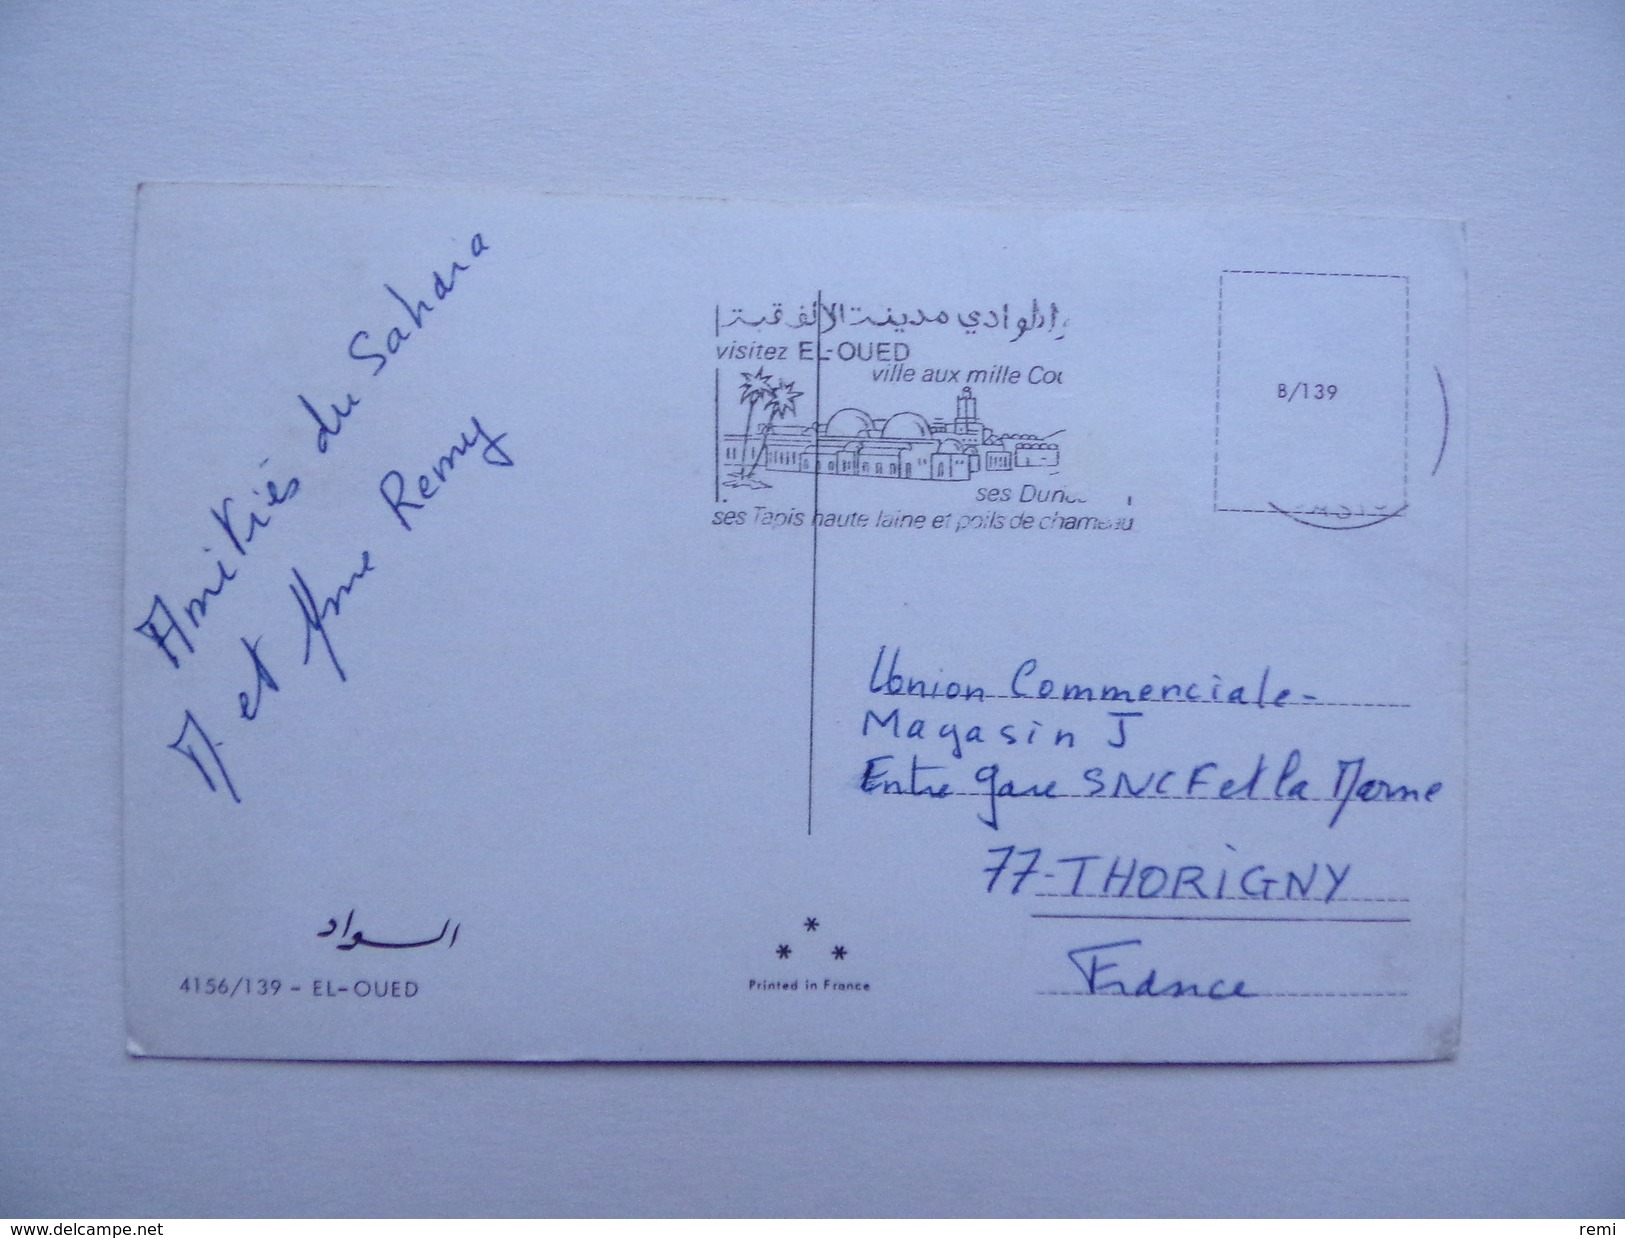 Amitiés du Sahara
M. et Mme Remy
السواد
4156/139 - EL-OUED
الوادي مدينة الالف قبة
visitez EL-OUED
ville aux mille Cou
ses Dunes
ses Tapis haute laine et poils de chameau
B/139
Union Commerciale-
Magasin J
Entre gare SNCF et la Marne
77-THORIGNY
France
* * *
Printed in France
www.delcampe.net
remi